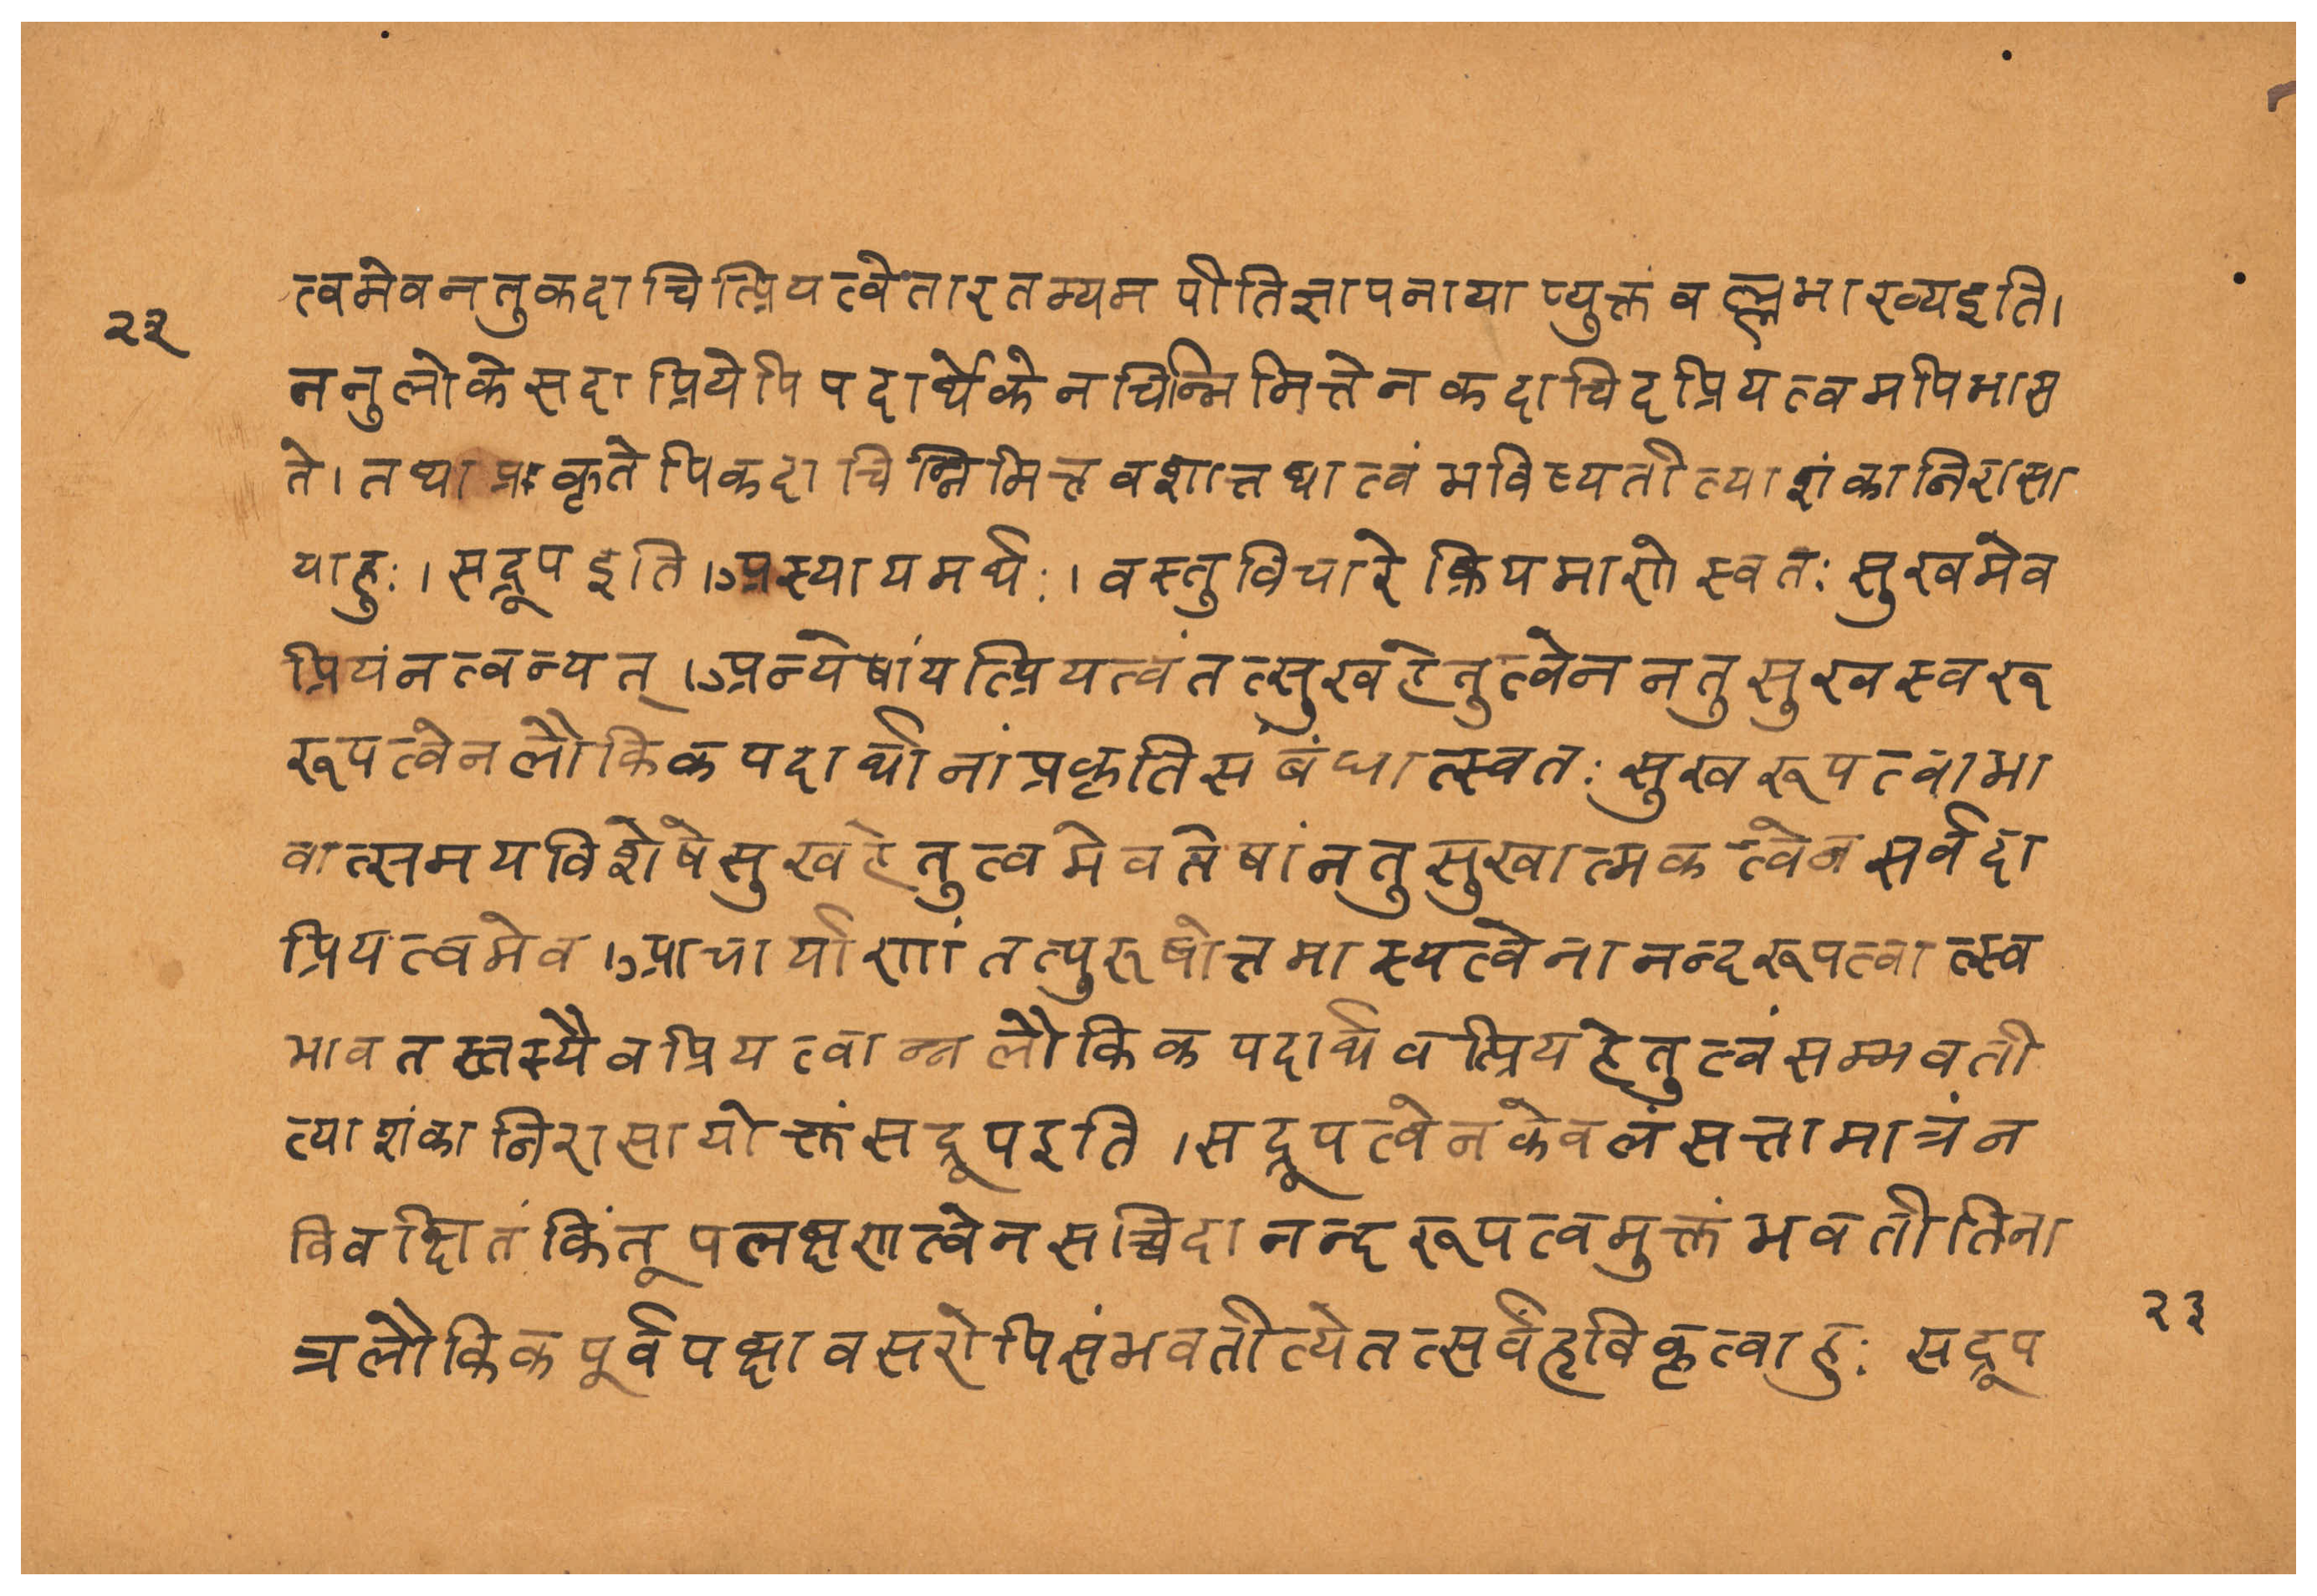 त्वमेवनतुकदाचित्प्रियत्वेतारतम्यमपीतिज्ञापनायाप्युक्तंवल्लभाख्यइति।
२३
ननुलोकेसदाप्रियेपिपदार्थेकेनचिन्निमित्तेनकदाचिदप्रियत्वमपिभास
ते। तथाप्रकृतेपिकदाचिन्निमित्तवशात्तथात्वंभविष्यतीत्याशंकानिरासा
याहुः। सद्रूपइति। अस्यायमर्थः। वस्तुविचारेक्रियमाणेस्वतः सुखमेव
प्रियंनत्वन्यत्। अन्येषांयत्प्रियत्वंतत्सुखहेतुत्वेननतुसुखस्वरू
रूपत्वेनलौकिकपदार्थानांप्रकृतिसंबंधात्स्वतः सुखरूपत्वाभा
वात्समयविशेषेसुखहेतुत्वमेवतेषांनतुसुखात्मकत्वेनसर्वदा
प्रियत्वमेव। आचार्याणांतत्पुरूषोत्तमास्यत्वेनानन्दरूपत्वात्स्व
भावतस्तस्यैवप्रियत्वान्नलौकिकपदार्थवत्प्रियहेतुत्वंसम्भवती
त्याशंकानिरासायोक्तंसद्रूपइति। सद्रूपत्वेनकेवलंसत्तामात्रंन
विवक्षितंकिंतूपलक्षणत्वेनसच्चिदानन्दरूपत्वमुक्तंभवतीतिना
त्रलौकिकपूर्वपक्षावसरोपिसंभवतीत्येतत्सर्वंहृविकृत्वाहुः सद्रूप
२३